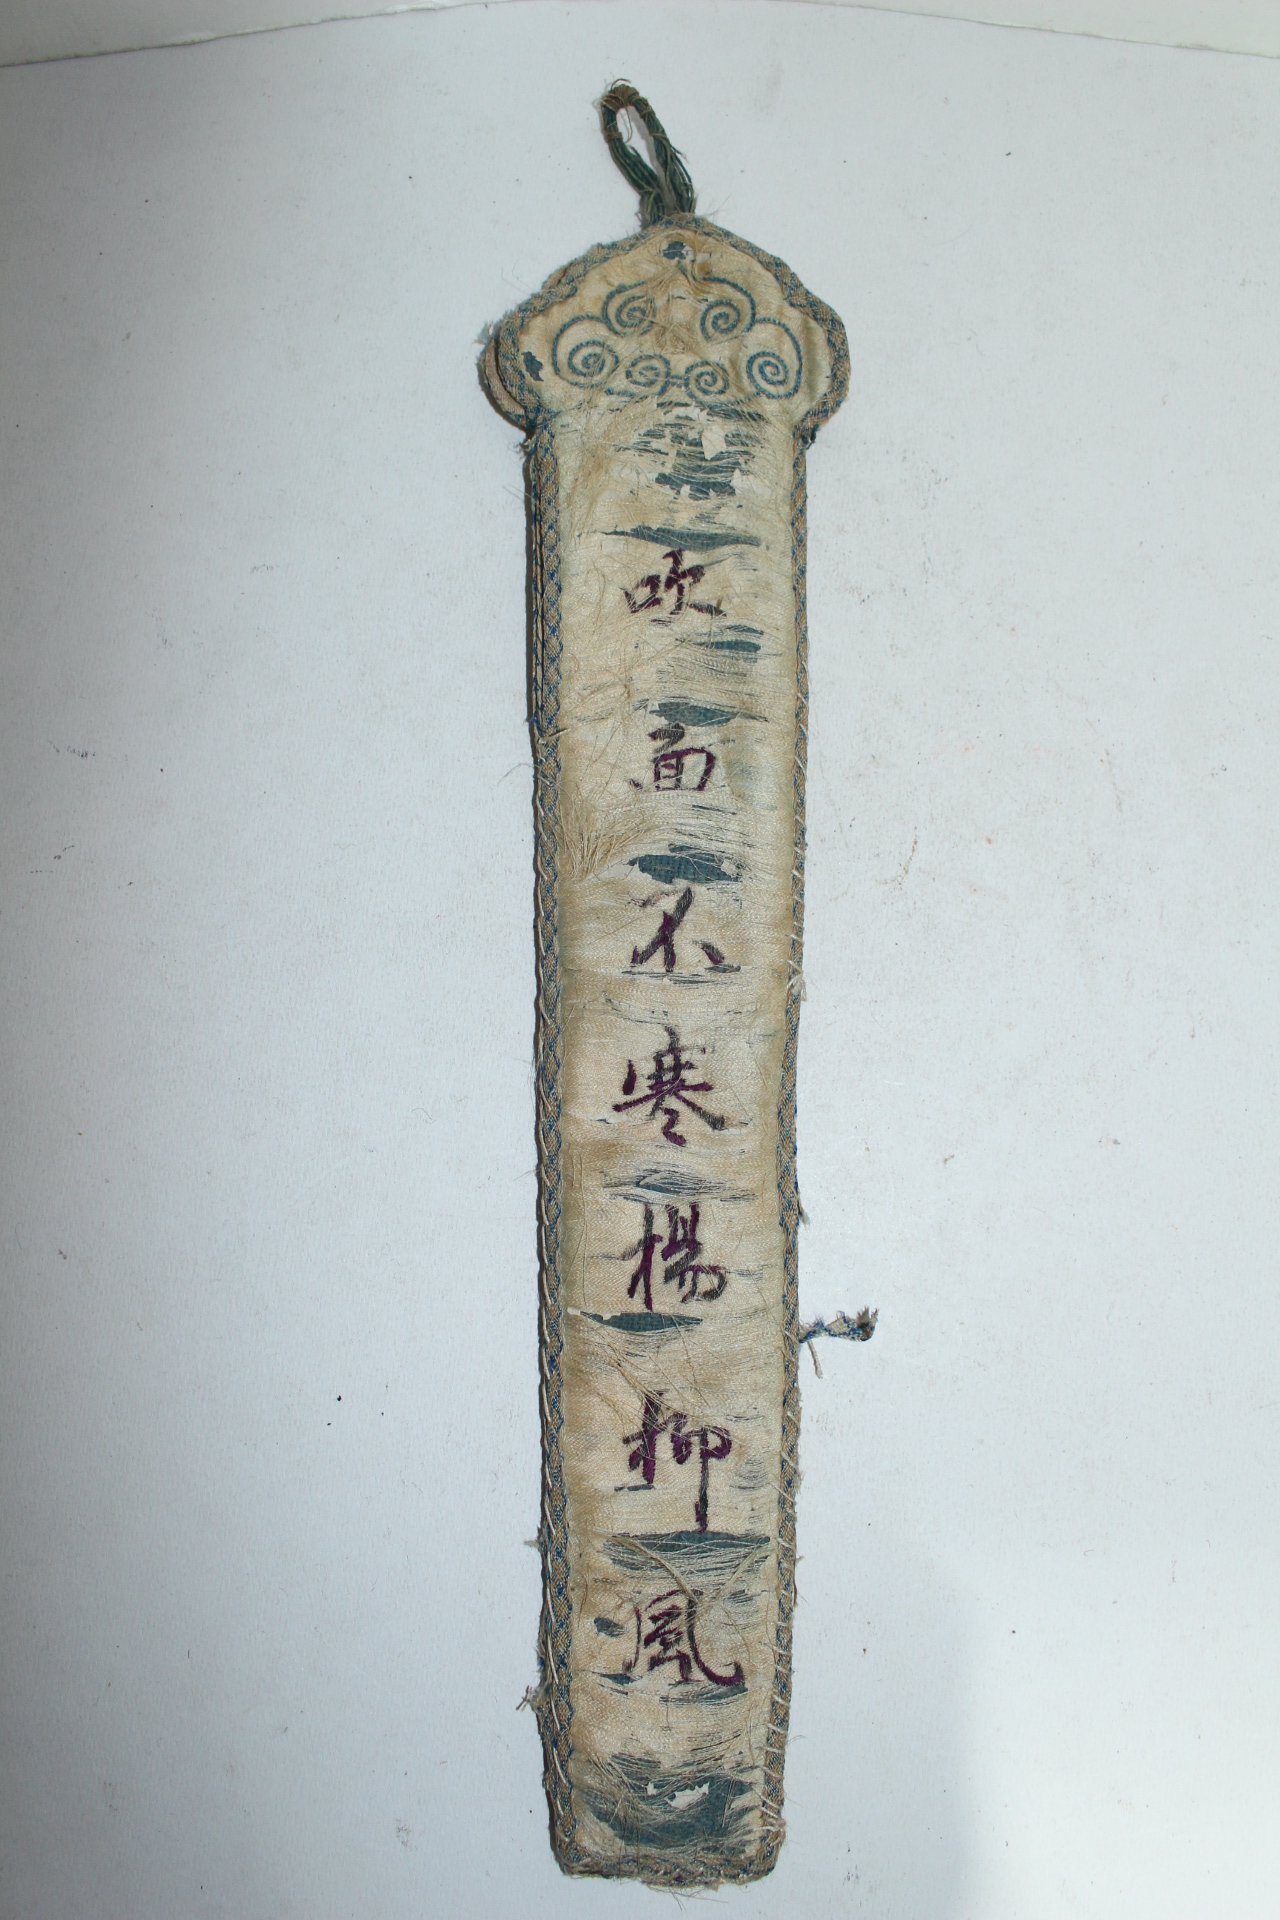 吹面不寒楊柳風